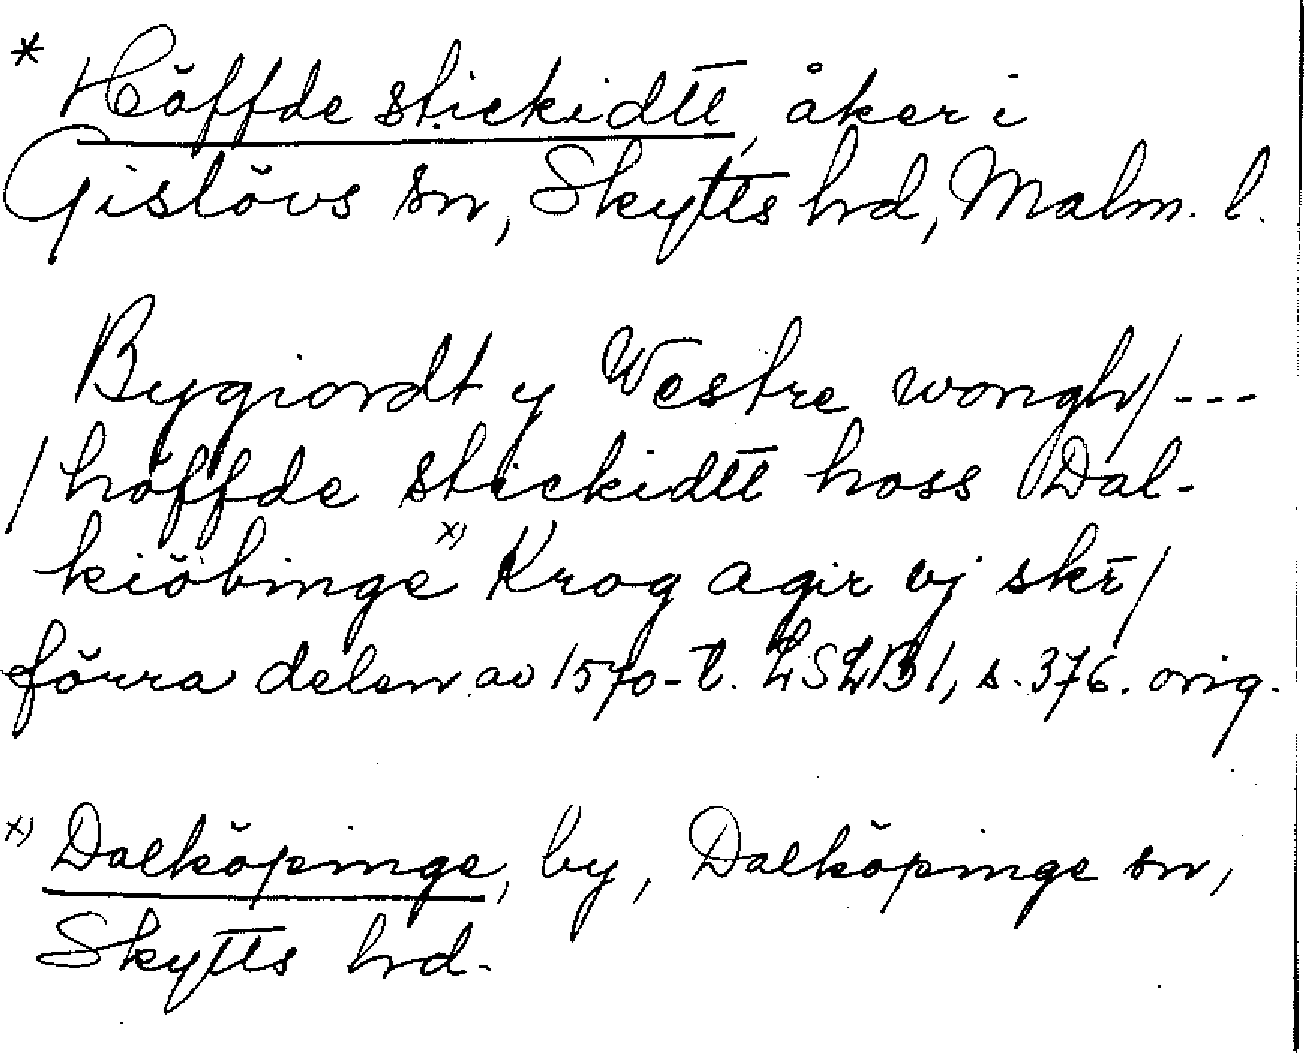 * Höffde stickidtt, åker i
Gislövs sn, Skytts hrd, Malm. l.
Bygiordt y Westre wongh/ ---
/ höffde stickidtt hoss Dal-
kiöbinge x) Krog agir vj skr/
förra delen av 1570-t. LSLB 1, s. 376. orig.
x) Dalköpinge, by, Dalköpinge sn,
Skytts hrd.